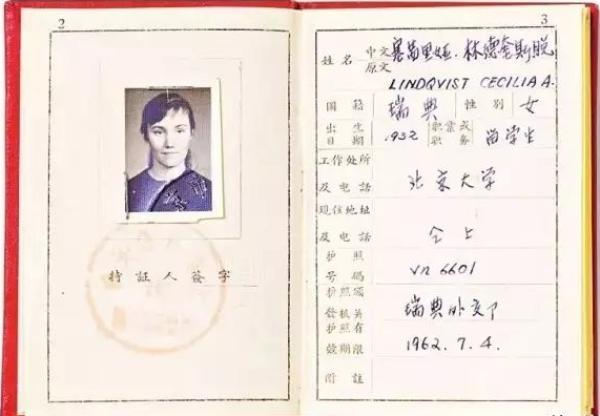 2
持証人簽字
3
姓名 中文 塞茜里娅·林德奎斯脱
原文 LINDQVIST CECILIA A.
国籍 瑞典 性别 女
出生日期 1932 职業或职務 留学生
工作处所及电話 北京大学
現住地址及电話 仝上
护照号碼 VR 6601
护照頒發机关 瑞典外交部
护照有效期限 1962.7.4.
附註